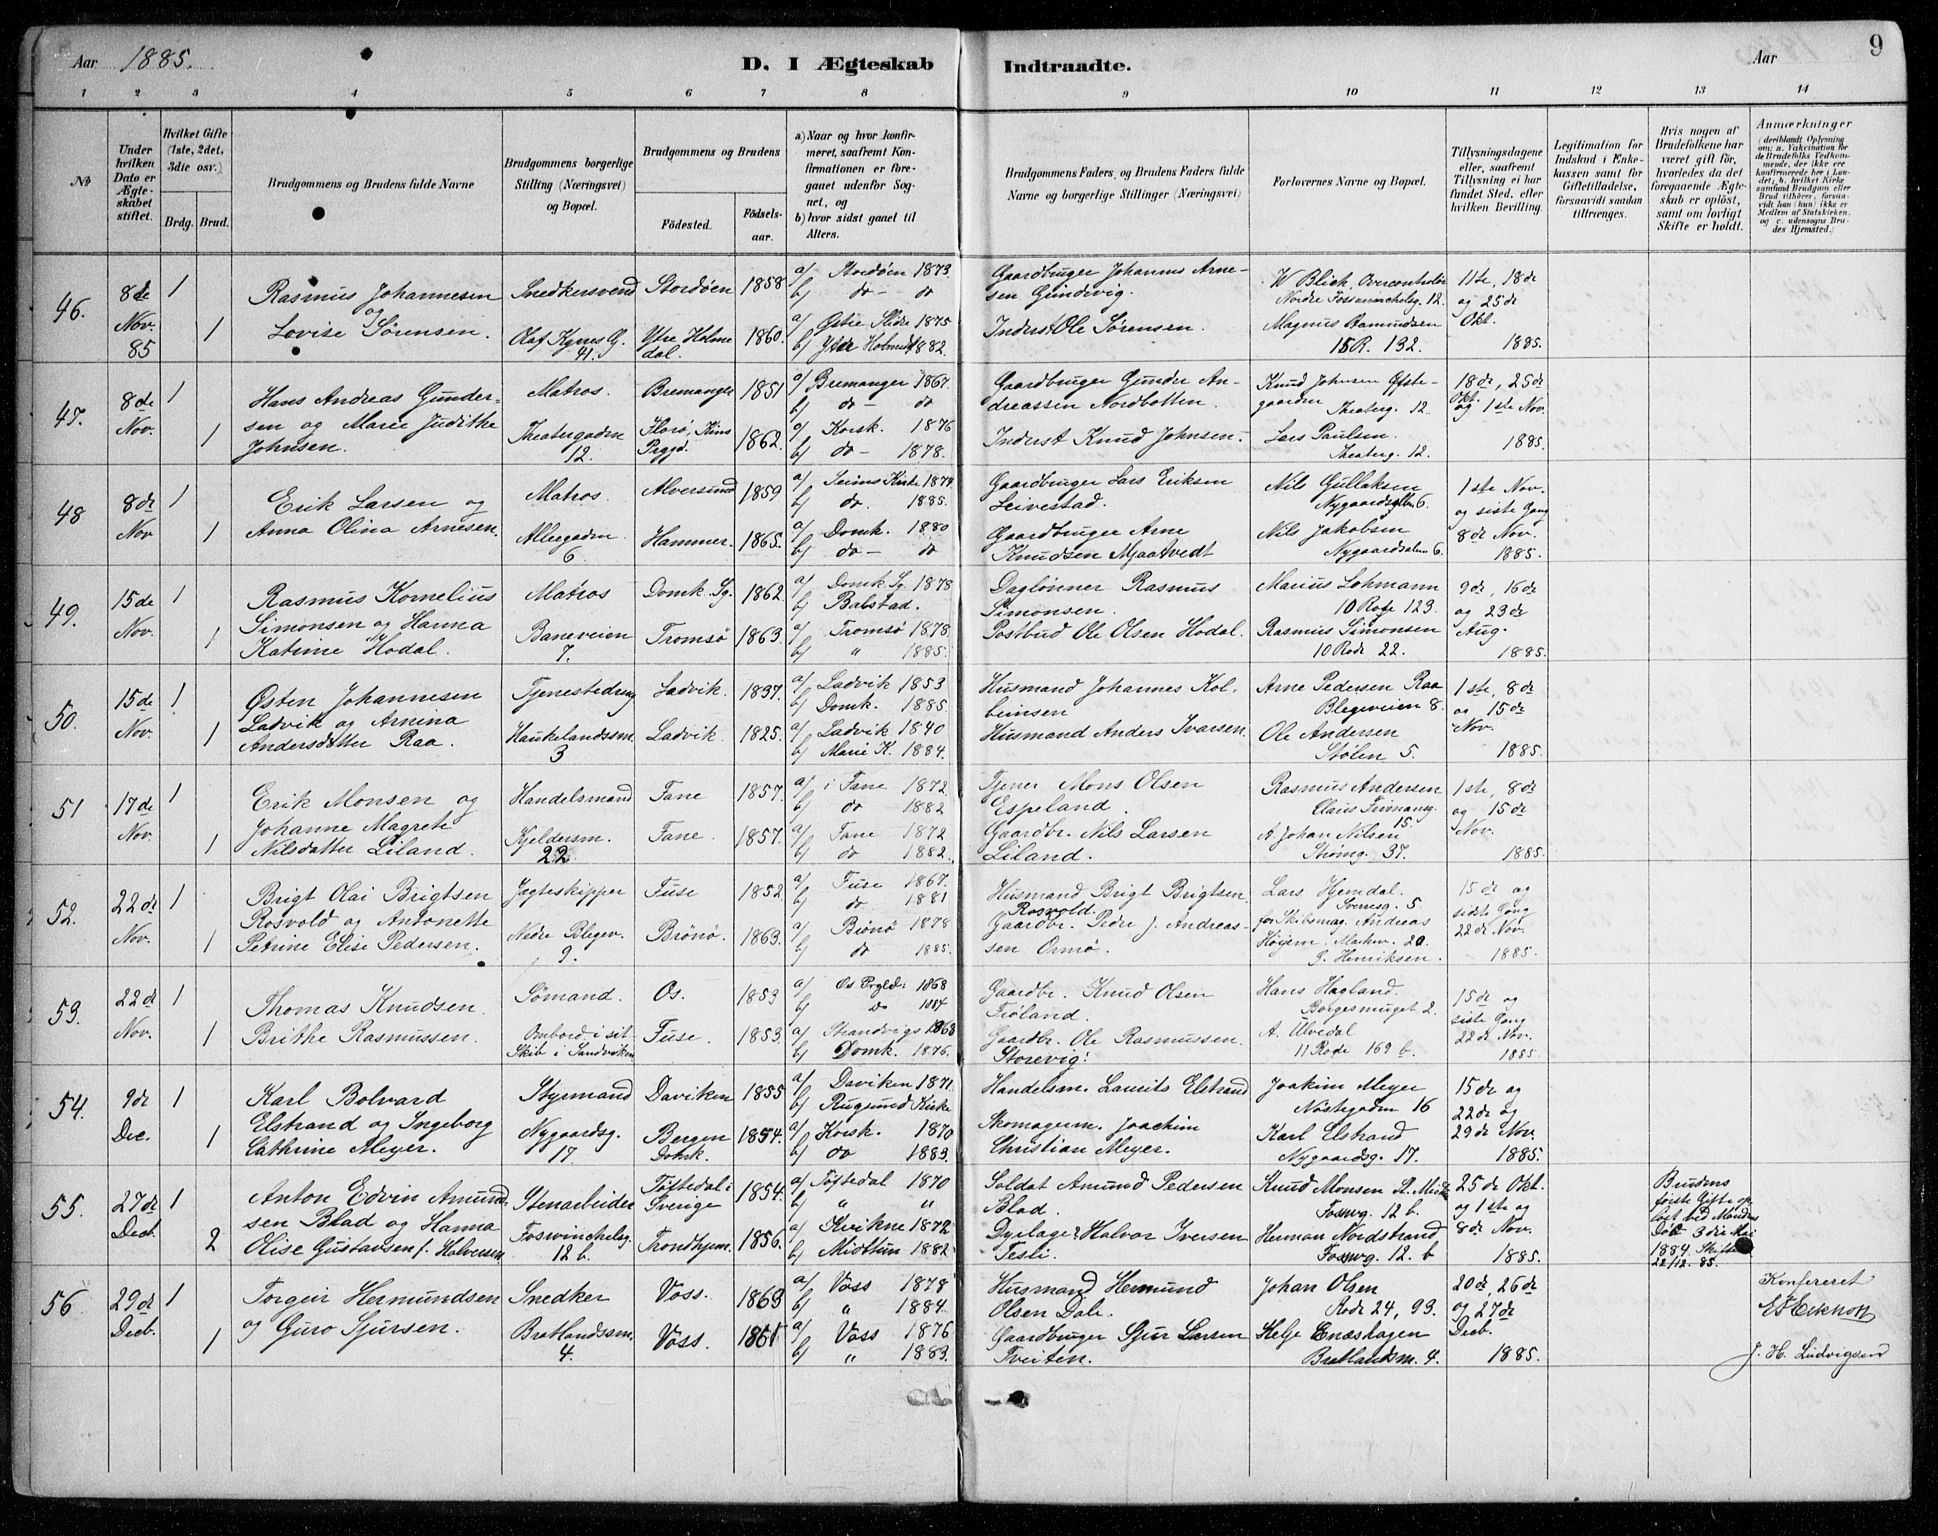 Aar 1885. D. I Ægteskab Indtraadte. Aar 9
1 2 3 4 5 6 7 8 9 10 11 12 13 14
№
Under hvilken Dato er Ægteskabet stiftet.
Hvilket Gifte (1ste, 2det, 3die osv.)
Brdg. Brud.
Brudgommens og Brudens fulde Navne
Brudgommens borgerlige Stilling (Næringsvei) og Bopæl.
Brudgommens og Brudens
Födested. Födselsaar.
a) Naar og hvor konfirmeret, saafremt Konfirmationen er foregaaet udenfor Sognet, og
b) hvor sidst gaaet til Alters.
Brudgommens Faders, og Brudens Faders fulde Navne og borgerlige Stillinger (Næringsvei)
Forlovernes Navne og Bopæl.
Tillysningsdagene eller, saafremt Tillysning ei har fundet Sted, efter hvilken Bevilling.
Legitimation for Indskud i Enkekassen samt for Giftetilladelse, forsaavidt saadan tiltrænges.
Hvis nogen af Brudefolkene har været gift før, hvorledes da det foregaaende Ægteskab er opløst, samt om lovligt Skifte er holdt.
Anmærkninger (deriblandt Oplysning om: a. Vakcination for de Brudefolks Vedkommende, der ikke ere konfirmerede her i Landet; b. hvilket Kirkesamfund Brudgom eller Brud tilhører, forsaavidt han (hun) ikke er Medlem af Statskirken, og c. udensogns Brudes Hjemsted.)
46. 8de Nov. 85 1 1
Rasmus Johannesen
og
Lovise Sørensen.
Snedkersvend
Olaf Kyrres G. 41.
Stordøen 1858
Ytre Holmedal. 1860.
a/ Stordøen 1873.
b/ do - do
a/ Østre Slidre 1875
b/ Ytre Holmedal 1882.
Gaardbruger Johannes Arnesen Gundevig.
Inderst Ole Sørensen.
W Blich, Overcontrolør
12.
Magnus Aamundsen
15 R. 132.
11te, 18de og 25de Okt. 1885.
47. 8de Nov. 1 1
Hans Andreas Gundersen og Marie Judithe Johnsen.
Matros.
Theatergaden 12.
Bremanger 1851
Florø, Kins Prgjd. 1862.
a/ Bremanger 1867.
b/ do - do
a/ Korsk. 1876
b/ do - 1878.
Gaardbruger Gunder Andreassen Nordbotten.
Inderst Knud Johnsen.
Knud Johnsen Øfstegaarden
Theaterg. 12.
Lars Paulsen.
Theaterg. 12.
18de, 25de Okt. og 1ste Nov. 1885.
48 8de Nov 1 1
Erik Larsen og
Anna Olina Arnesen.
Matros.
Alleegaden 6
Alversund 1859
Hammer. 1865.
a/ Seims Kirke 1874
b/ do. 1885.
a/ Domk. 1880
b/ do - do
Gaardbruger Lars Eriksen Leivestad.
Gaardbruger Arne Knudsen Mjaatvedt
Nils Gullaksen
Nygaardsalleen 6.
Nils Jakobsen
Nygaardsalleen 6.
1ste Nov. og sidste Gang 8de Nov. 1885.
49. 15de Nov. 1 1
Rasmus Kornelius
Simonsen og Hanna
Katrine Hodal.
Matros
Baneveien 7.
Domk Sg. 1862.
Tromsø 1863.
a/ Domk Sg. 1878
b/ Babstad.
a/ Tromsø 1878.
b/ " 1885.
Daglønner Rasmus Simonsen.
Postbud Ole Olsen Hodal.
Marius Lohmann
10 Rode 123.
Rasmus Simonsen
10 Rode 22.
9de, 16de og 23de Aug. 1885.
50. 15de Nov. 1 1
Østen Johannesen
Ladvik og Arnina
Andersdatter Raa.
Tjenestedreng
Haukelandsm. 3
Ladvik. 1837.
Ladvik. 1825.
a/ Ladvik 1853
b/ Domk. 1885
a/ Ladvik 1840
b/ Marie K. 1884.
Husmand Johannes Kolbeinsen
Husmand Anders Ivarsen.
Arne Pedersen Raa
Blegeveien 8.
Ole Andersen
Stølen 5.
1ste, 8de og 15de Nov. 1885.
51 17de Nov. 1 1
Erik Monsen og
Johanne Magrete
Nilsdatter Liland.
Handelsmand
Kjeldersm. 22
Fane 1857.
Fane. 1857.
a/ i Fane 1872
b/ do 1882
a/ Fane 1872
b/ do 1882.
Tjener Mons Olsen Espeland.
Gaardbr. Nils Larsen Liland.
Rasmus Andersen
Claus Frimansg. 15.
A. Johan Nilsen
Strømg. 37.
1ste, 8de og 15de Nov. 1885.
52. 22de Nov. 1 1
Brigt Olai Brigtsen
Rosvold og Antonette
Petrine Elise Pedersen.
Jagteskipper
Nedre Blegev. 9.
Fuse 1852.
Brønø. 1863.
a/ Fuse 1867.
b/ do - 1881
a/ Brønø 1878
b/ do 1885.
Husmand Brigt Brigtsen Rosvold.
Gaardbr. Peder J. Andreassen Ormø.
Lars Hjemdal.
Sverresg. 5
for Skibsmæg. Andreas Høijem. Markev. 20.
S. Henriksen.
15de og sidste Gang 22de Nov. 1885.
53. 22de Nov. 1 1
Thomas Knudsen.
Brithe Rasmussen.
Sømand.
Ombord i sit Skib i Sandviken
Os. 1853
Fuse. 1853.
a/ Os Prgjld: 1868
b/ do 1884
a/ Strandvigs 1868
b/ Domk. 1876.
Gaardbr. Knud Olsen Trøland.
Gaardbr. Ole Rasmussen Storevig.
Hans Hagland.
Borgesmuget 2.
A. Ulvedal
11 Rode 169 b.
15de og sidste Gang 22de Nov. 1885.
54. 9de Dec. 1 1
Karl Bolvard
Elstrand og Ingeborg
Cathrine Meyer.
Styrmand
Nygaardsg. 17.
Daviken 1855
Bergen Domk. 1854.
a/ Daviken 1871.
b/ Rugsund Kirke
a/ Korsk. 1870
b/ do 1883.
Handelsm. Laurits Elstrand
Skomagerm. Joachim Christian Meyer.
Joakim Meyer
Nøstegaden 16
Karl Elstrand
Nygaardsg. 17.
15de og 22de og 29de Nov. 1885.
55. 27de Decb. 1 2
Anton Edvin Amundsen Blad og Hanna
Olise Gustavsen f. Halvorsen
Stenarbeider
Foswinckelsg. 12 b.
Töftedal i Sverige 1854.
Trondhjem. 1856.
a/ Töftedal 1870
b/ " "
a/ Kvikne 1872
b/ Midttun 1882.
Soldat Amund Pedersen Blad.
Dyrlæge Halvor Iversen Tesli.
Knud Monsen
Foswg. 12 b.
Herman Nordstrand
Foswg. 12. b
25de Okt. og 1ste og 8de Nov. 1885.
Brudens første Gifte opløst ved Mandens Død 3die Mai 1884. Skifte 22/12. 85.
56. 29de Decb. 1 1
Torgeir Hermundsen
og Guro Sjursen.
Snedker
Bratlandssm. 4.
Voss. 1863
Voss. 1861
a/ Voss 1878
b/ " 1884.
a/ Voss 1876
b/ " 1883.
Husmand Hermund Olsen Dale.
Gaardbruger Sjur Larsen Tveiten.
Johan Olsen
Rode 24, 93.
Helje Enæshagen
Bratlandsm. 4.
20de, 26de og 27de Decb. 1885.
Konfereret
J. H. Ludvigsen